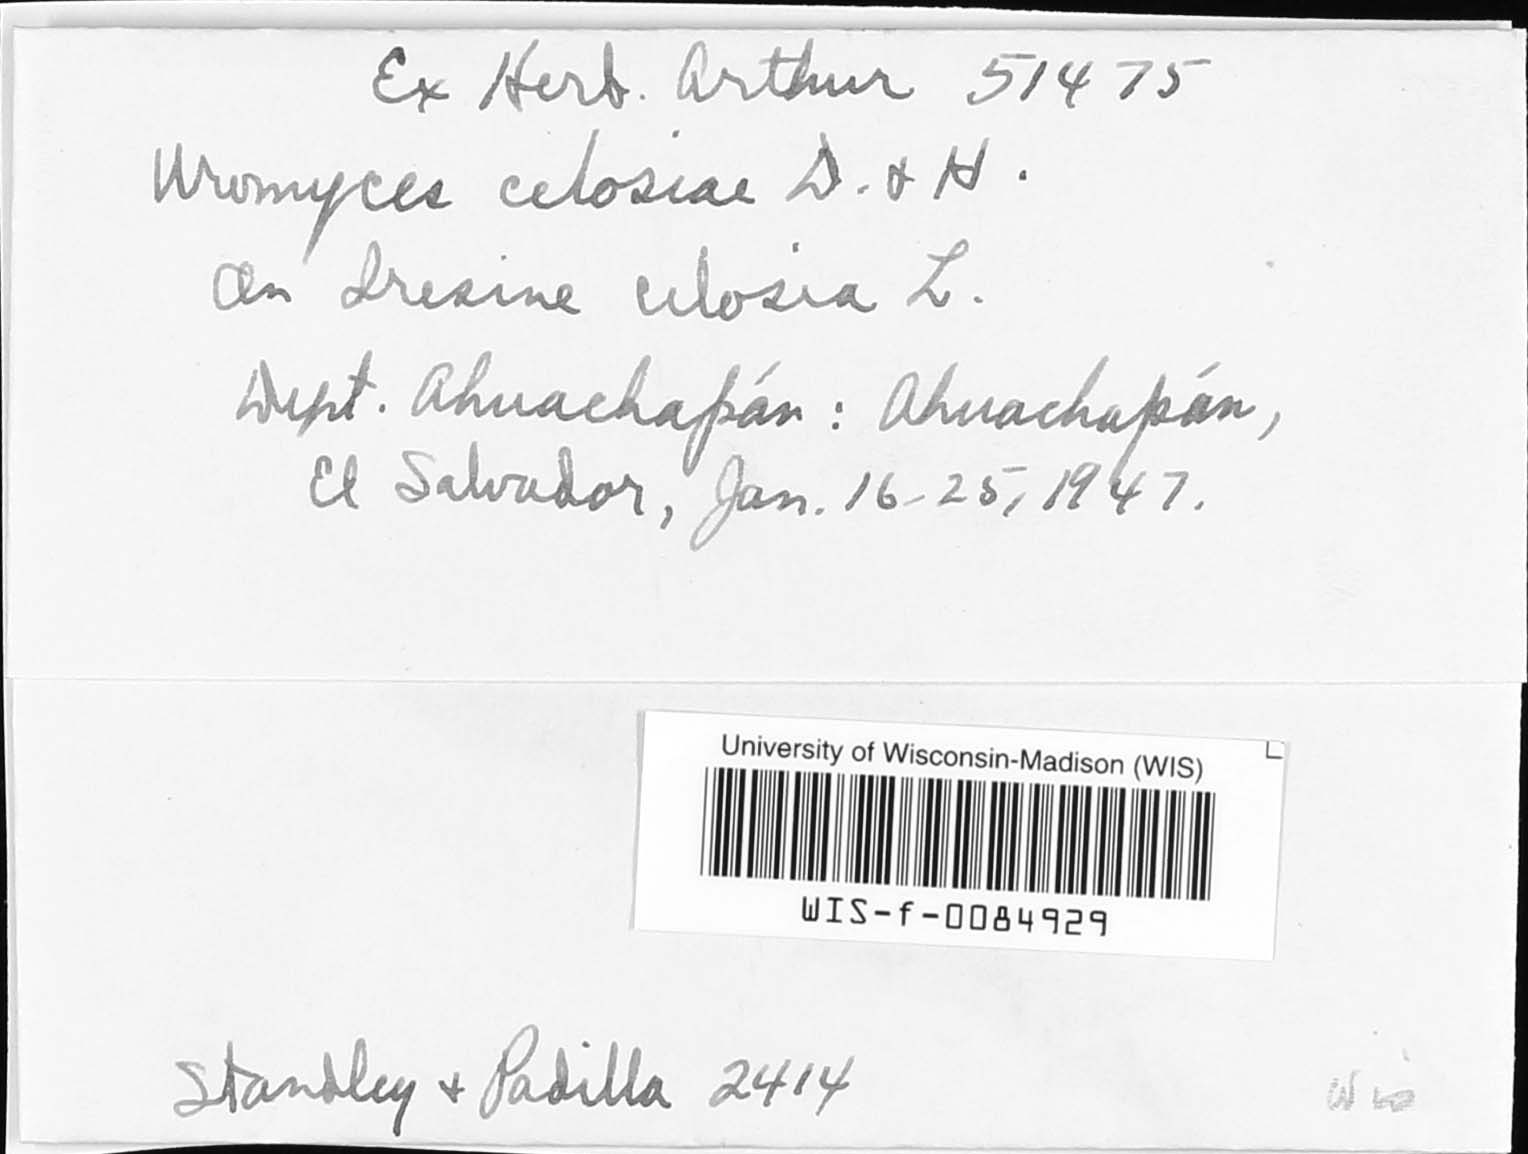 Ex Herb. Arthur 51475
Uromyces celosiae D. & H.
On Iresine celosia L.
Dept. Ahuachapán: Ahuachapán,
El Salvador, Jan. 16-25, 1947.
University of Wisconsin-Madison (WIS)
WIS-f-0084929
Standley + Padilla 2414
Wis